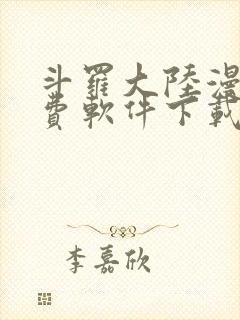 斗羅大陸漫
費軟件下載
李嘉欣